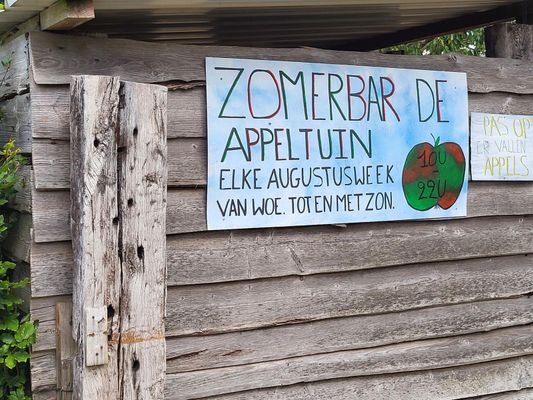 ZOMERBAR DE
APPELTUIN
ELKE AUGUSTUSWEEK
VAN WOE. TOT EN MET ZON.
10U
-
22U
PAS OP
ER VALLEN
APPELS